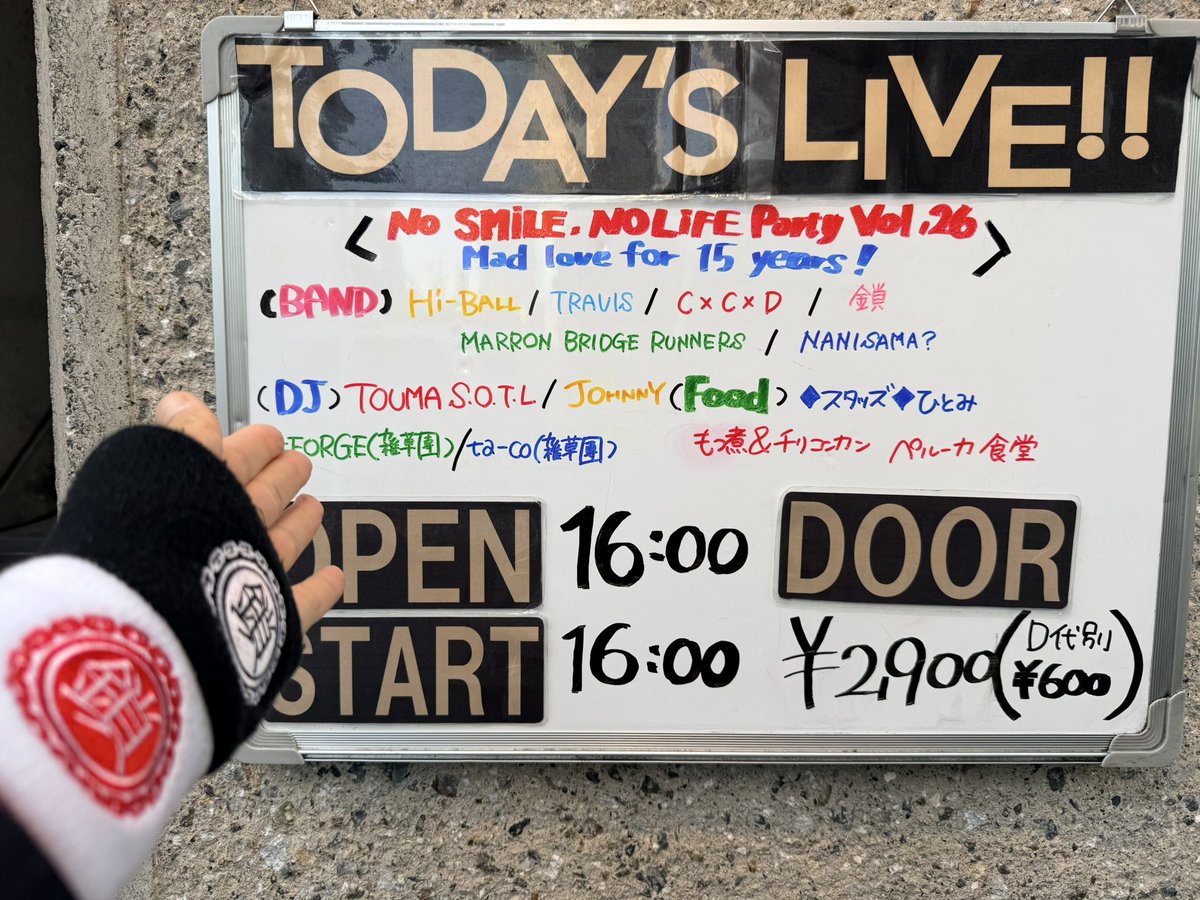 TODAY'S LIVE!!
< No SMiLE. NO LiFE Party Vol.26 >
Mad love for 15 years!
(BAND) Hi-BALL / TRAVIS / C×C×D / 鎖
MARRON BRIDGE RUNNERS / NANISAMA?
(DJ) TOUMA S.O.T.L / JOHNNY (Food) ◆スタッズ◆ひとみ
EORGE(雑草團) / ta-co(雑草團) もつ煮&チリコンカン ペルーカ食堂
OPEN 16:00 DOOR
START 16:00 ¥2,900 (D代別 ¥600)
鎖
鎖